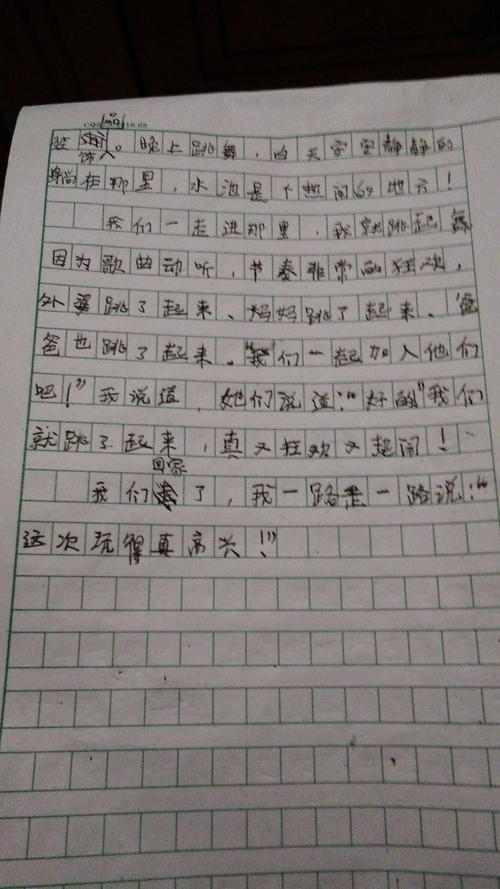 装饰人。晚上跳舞，白天安安静静的
在那里，水池是个热闹的地方！
我们一走进那里，我就跳起舞
因为歌曲动听，节奏非常的狂欢，
外婆跳了起来、妈妈跳了起来、爸
爸也跳了起来。“我们一起加入他们
吧！”我说道，她们说道：“好的”我们
就跳了起来，真又狂欢又起闹！
我们回家了，我一路走一路说：“
这次玩得真高兴！”